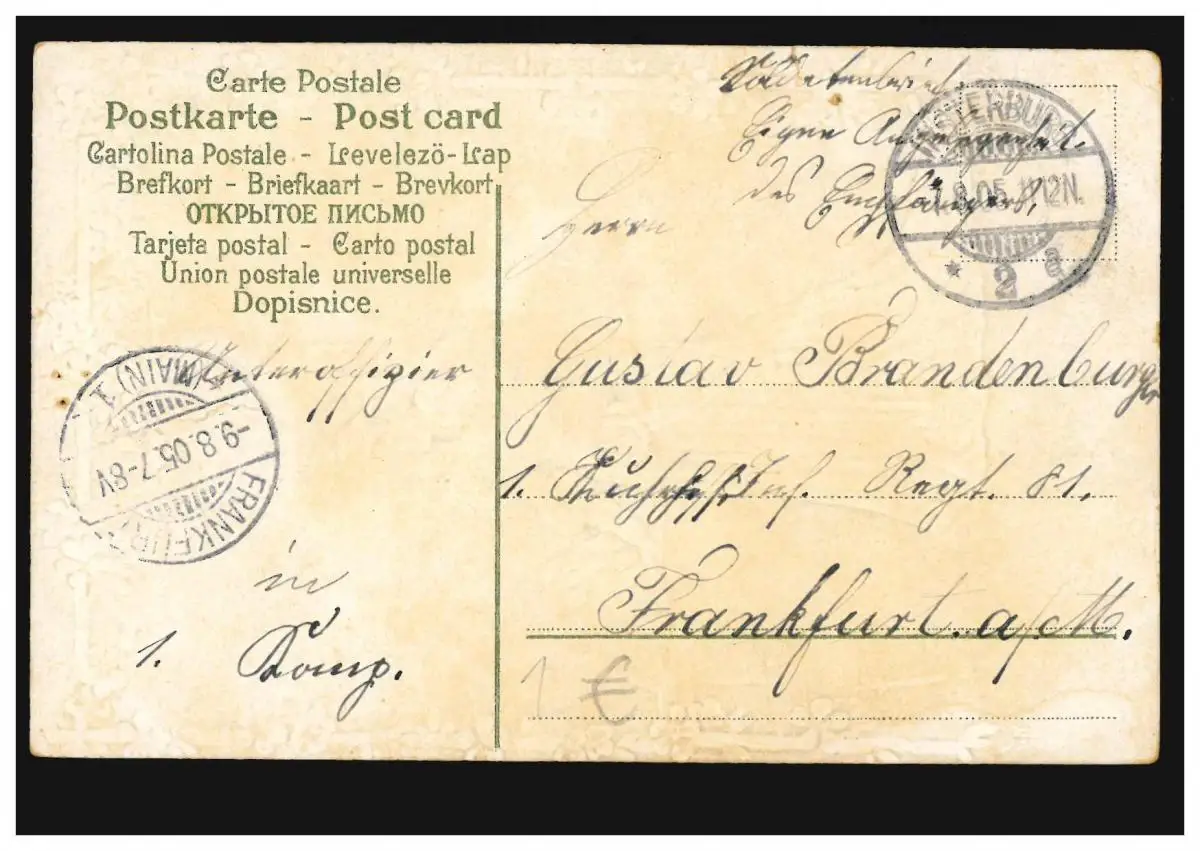 Carte Postale
Postkarte - Post card
Cartolina Postale - Levelezö-Lap
Brefkort - Briefkaart - Brevkort
ОТКРЫТОЕ ПИСЬМО
Tarjeta postal - Carto postal
Union postale universelle
Dopisnice.
Soldatenbrief
Eigene Angelegenheit
des Empfängers,
INSTERBURG
8.05. 11-12N.
* 2 a
Herrn
Gustav Brandenburger
Unteroffizier
1. Inf. Regt. 81.
Frankfurt a/M.
in
1. Komp.
FRANKFURT
(MAIN) 1
-9.8.05.7-8V
1 €